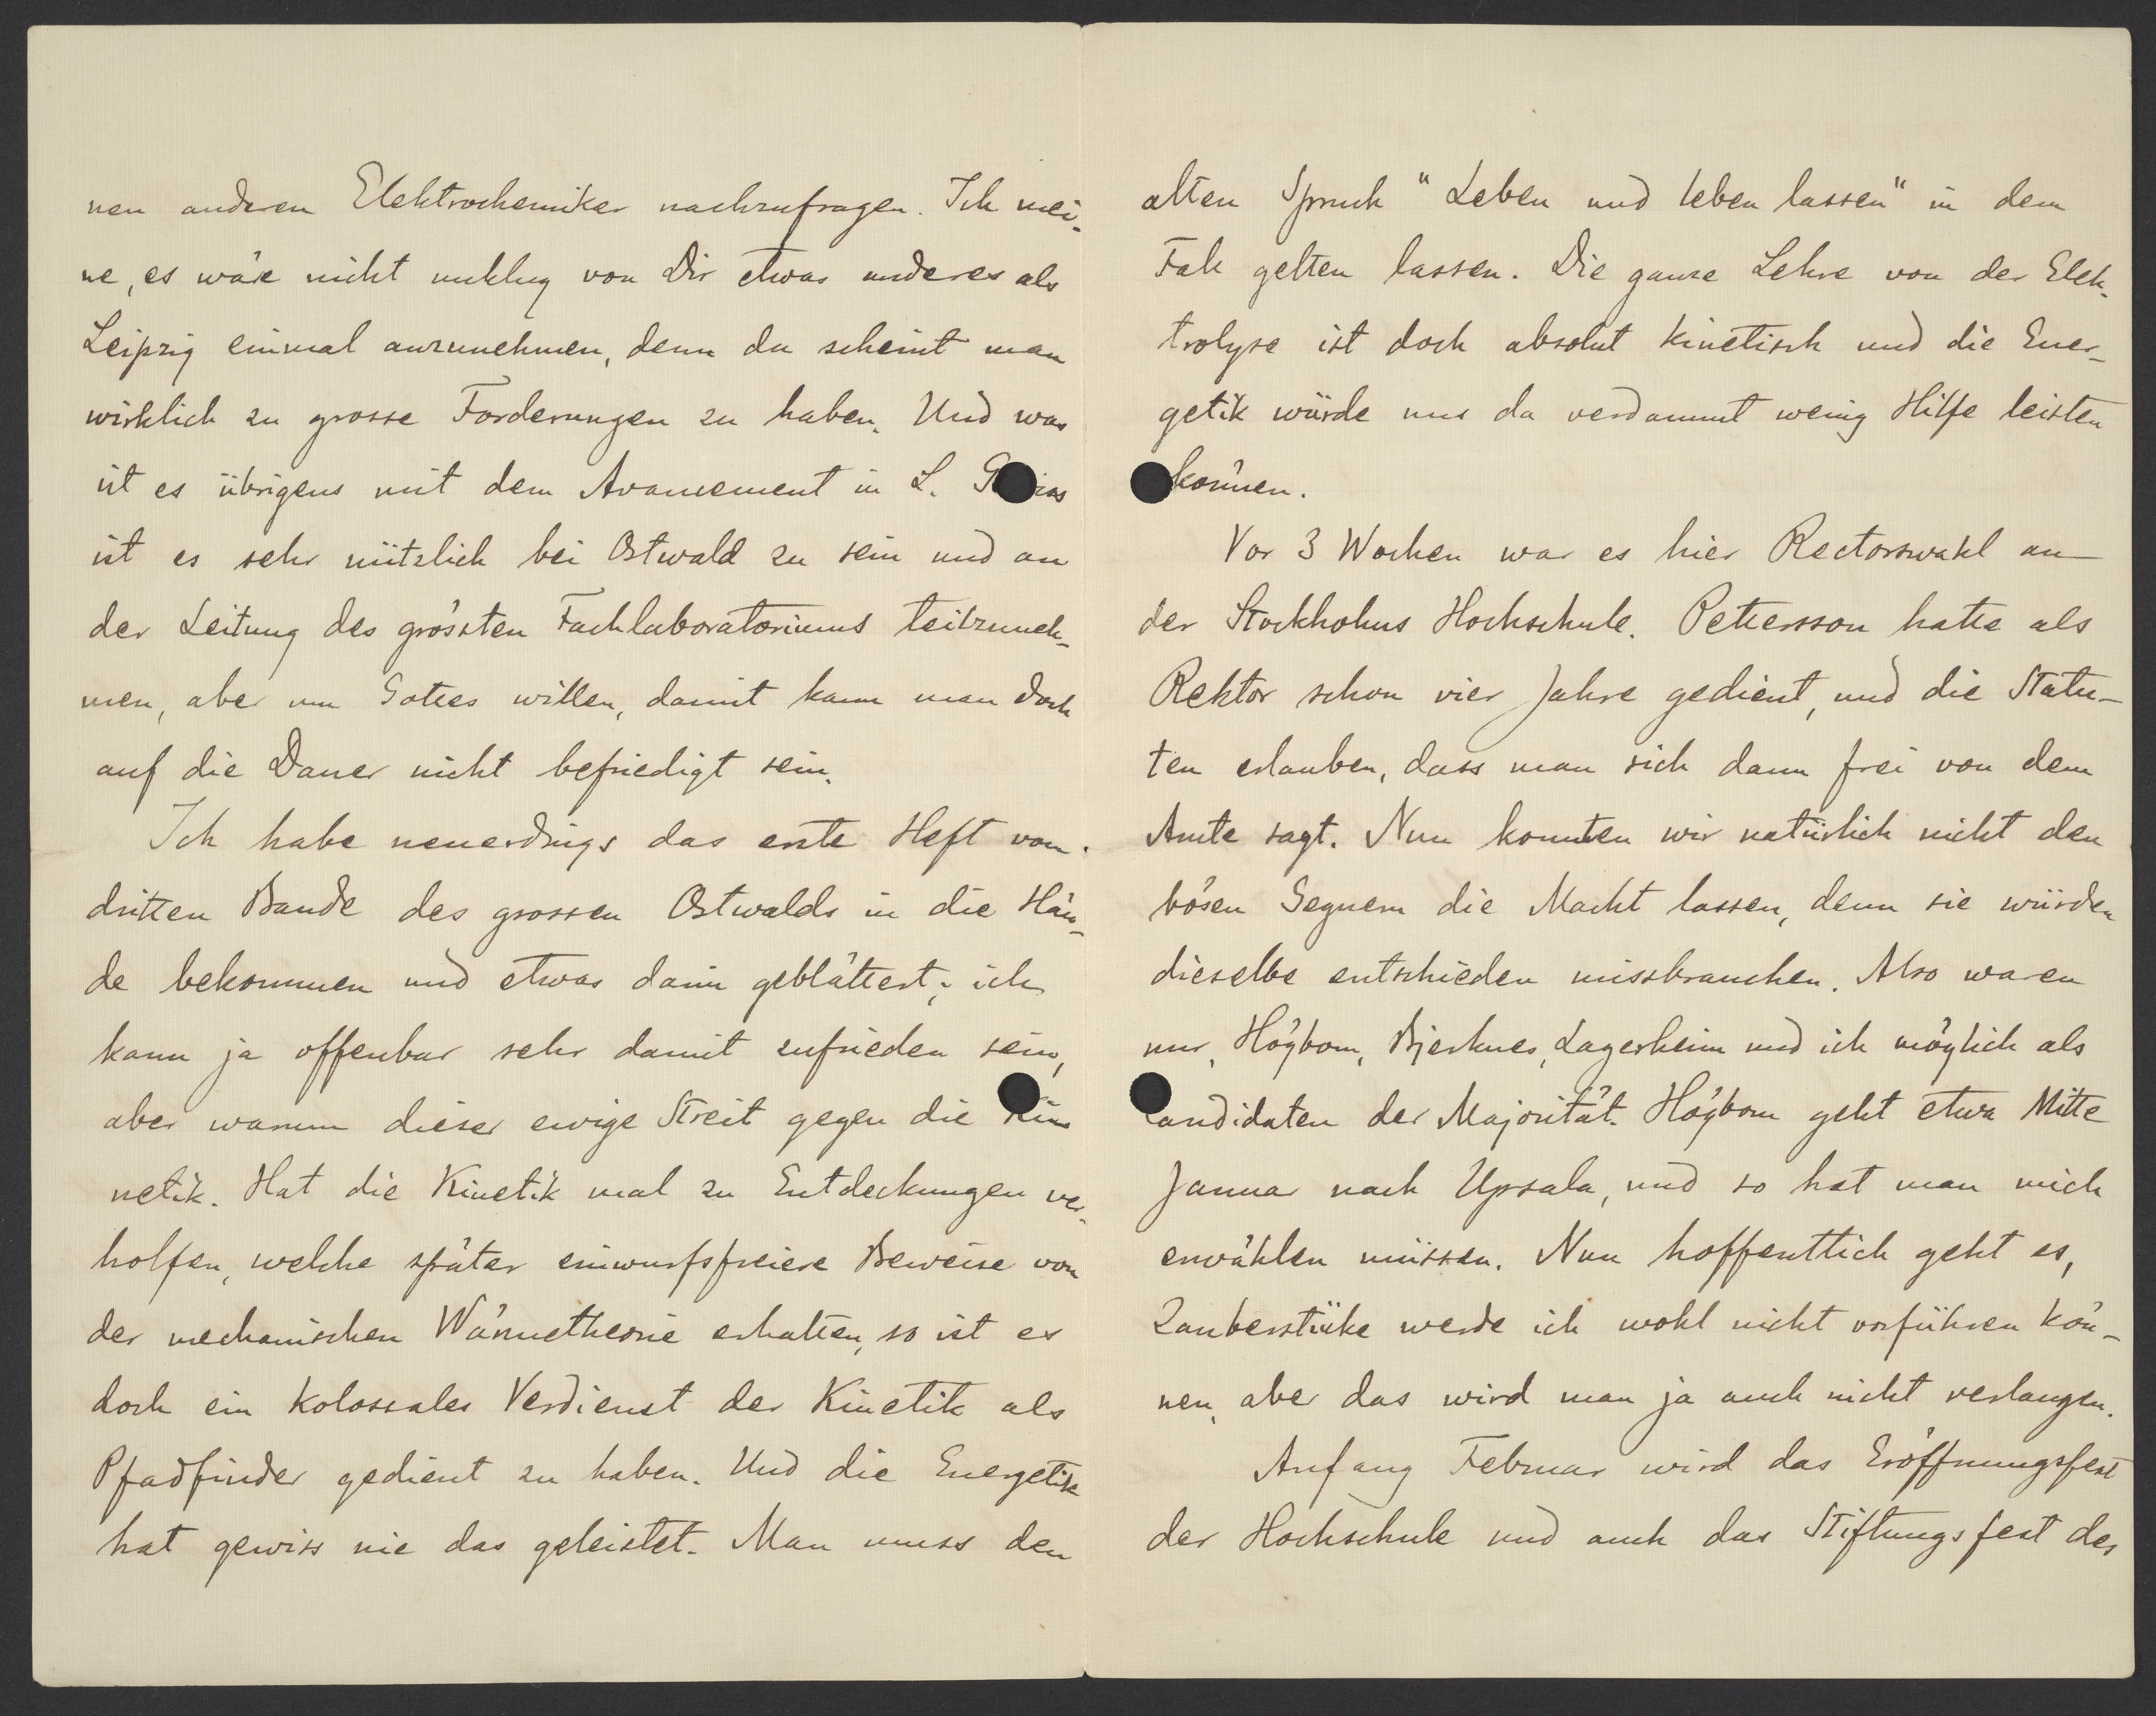 nen anderen Elektrochemiker nachzufragen. Ich mei-
ne, es wäre nicht unklug von Dir etwas anderes als
Leipzig einmal anzunehmen, denn da scheint man
wirklich zu grosse Forderungen zu haben. Und was
ist es übrigens mit dem Avancement in L. Gewiss
ist es sehr nützlich bei Ostwald zu sein und an
der Leitung des grössten Fachlaboratoriums teilzuneh-
men, aber um Gottes willen, damit kann man doch
auf die Dauer nicht befriedigt sein.
Ich habe neuerdings das erste Heft vom
dritten Bande des grossen Ostwalds in die Hän-
de bekommen und etwas darin geblättert; ich
kann ja offenbar sehr damit zufrieden sein,
aber warum dieser ewige Streit gegen die Ki-
netik. Hat die Kinetik mal zu Entdeckungen ver-
holfen, welche später einwurfsfreiere Beweise von
der mechanischen Wärmetheorie erhalten, so ist es
doch ein kolossales Verdienst der Kinetik als
Pfadfinder gedient zu haben. Und die Energetik
hat gewiss nie das geleistet. Man muss den
alten Spruch "Leben und leben lassen" in dem
Falle gelten lassen. Die ganze Lehre von der Elek-
trolyse ist doch absolut kinetisch und die Ener-
getik würde uns da verdammt wenig Hilfe leisten
können.
Vor 3 Wochen war es hier Rectorswahl an
der Stockholms Hochschule. Pettersson hatte als
Rektor schon vier Jahre gedient, und die Statu-
ten erlauben, dass man sich dann frei von dem
Amte sagt. Nun konnten wir natürlich nicht den
bösen Gegnern die Macht lassen, denn sie würden
dieselbe entschieden missbrauchen. Also waren
nur, Högbom, Bjerknes, Lagerheim und ich möglich als
Candidaten der Majorität. Högbom geht etwa Mitte
Januar nach Upsala, und so hat man mich
erwählen müssen. Nun hoffentlich geht es,
Zauberstücke werde ich wohl nicht vorführen kön-
nen, aber das wird man ja auch nicht verlangen.
Anfang Februar wird das Eröffnungsfest
der Hochschule und auch das Stiftungsfest des